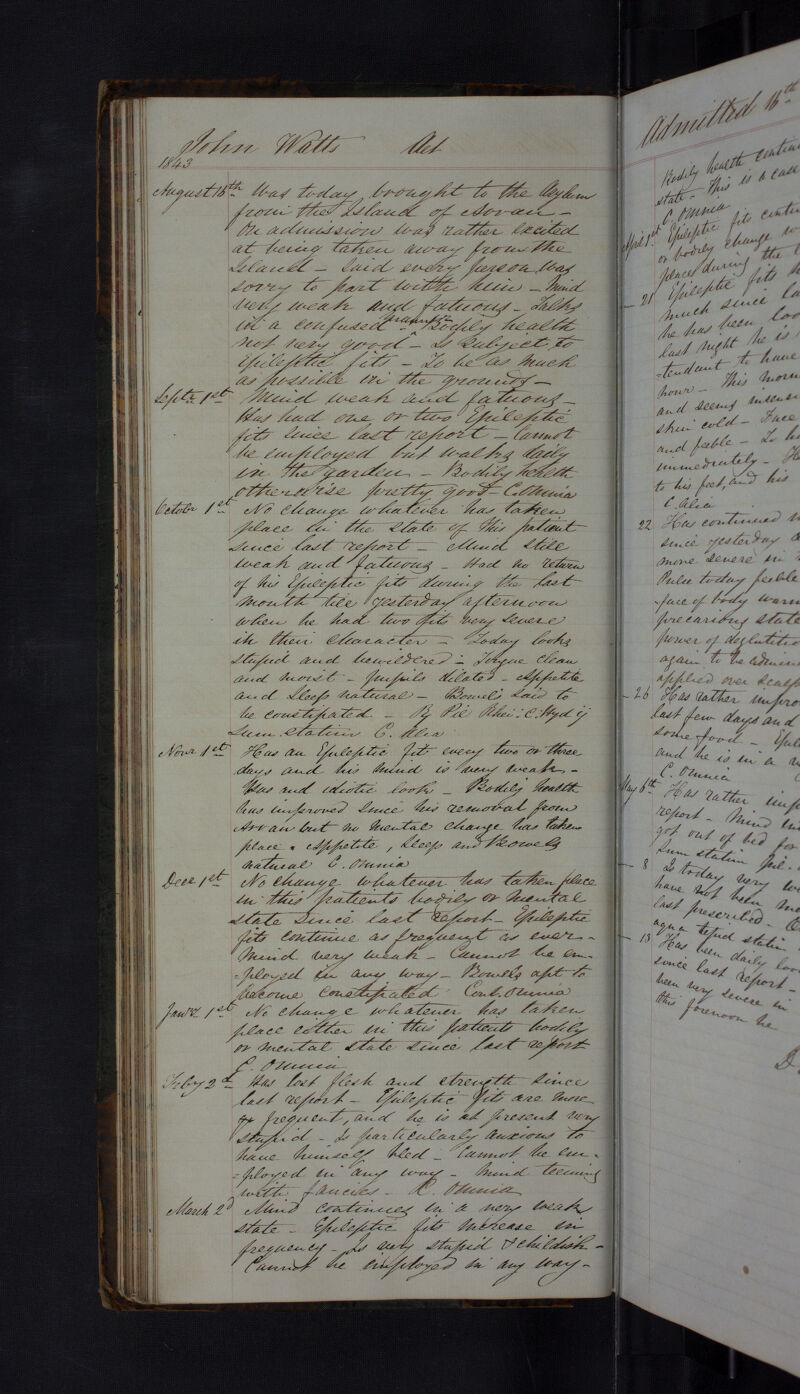 John Watts Aet
1843
August 15th Was today brought to the Asylum
from the Island of Arran -
On admission was rather excited
at being taken away from the
Island - Said every person was
sorry to part with him - Mind
very weak and fatuous - Talks
in a confused manner - Bodily health
not very good - Is subject to
epileptic fits - To be as much
as possible in the grounds -
Septr 1st Mind weak and fatuous -
Has had one or two Epileptic
fits since last report - Cannot
be employed but walks daily
in the garden - Bodily health
otherwise pretty good - C. Omnia
October 1st No change whatever has taken
place in the state of this patient
since last report - Mind still
weak and fatuous - Had no return
of his Epileptic fits during the last
month till yesterday afternoon
when he had two fits very severe
in their character - Today looks
stupid and bewildered - Tongue clean
and moist - pupils dilated - Appetite
and Sleep natural - Bowels said to
be constipated - Rx Pil Rhei: c. Hyd ij
Sum. statim C. Alia
Novr 1st Has an Epileptic fit every two or three
days and his mind is very weak -
Has an idiotic look - Bodily health
has improved since his removal from
Arran but no mental change has taken
place. Appetite, Sleep and Bowels
natural C. Omnia
Decr 1st No change whatever has taken place
in this patients bodily or mental
state since last report - Epileptic
fits continue as frequent as ever -
Mind very weak - Cannot be em-
=ployed in any way - Bowels apt to
become constipated Cont. Omnia
Janr 1st No change whatever has taken
place either in this patients bodily
or mental state since last report
C. Omnia
Feby 2d Has lost flesh and strength since
last report - Epileptic fits are more
frequent, and he is at present very
stupid - Is particularly anxious to
have himself bled - Cannot be em-
=ployed in any way - Mind teeming
with fancies - C. Omnia
March 2d Mind continues in a very weak
state - Epileptic fits increase in
frequency - Is very stupid & childish -
Cannot be employed in any way -
Admitted 15th
Bodily health
state - This is a case
C. Omnia
April 1st Epileptic fits
or bodily change
place during the
- 21 Epileptic fits
much since
he has been
last night he is
=tendant to have
hour - This
and seems
skin cold - Face
and feeble - To
immediately -
to his feet, and his
C. Alia
22 Has continued
since yesterday
more severe in
Pulse today feeble
=face of body warm
precarious state
power of
again to be
applied over scalp
- 26 Has rather
last few days and
some food -
and he is in a
C. Omnia
May 6th Has rather
report - Mind
got out of bed for
Sum statim
- 8 Is today very
have not been
last prescribed -
aqua tepid statim
- 13 Has been daily
since last report -
been very severe in
this forenoon he